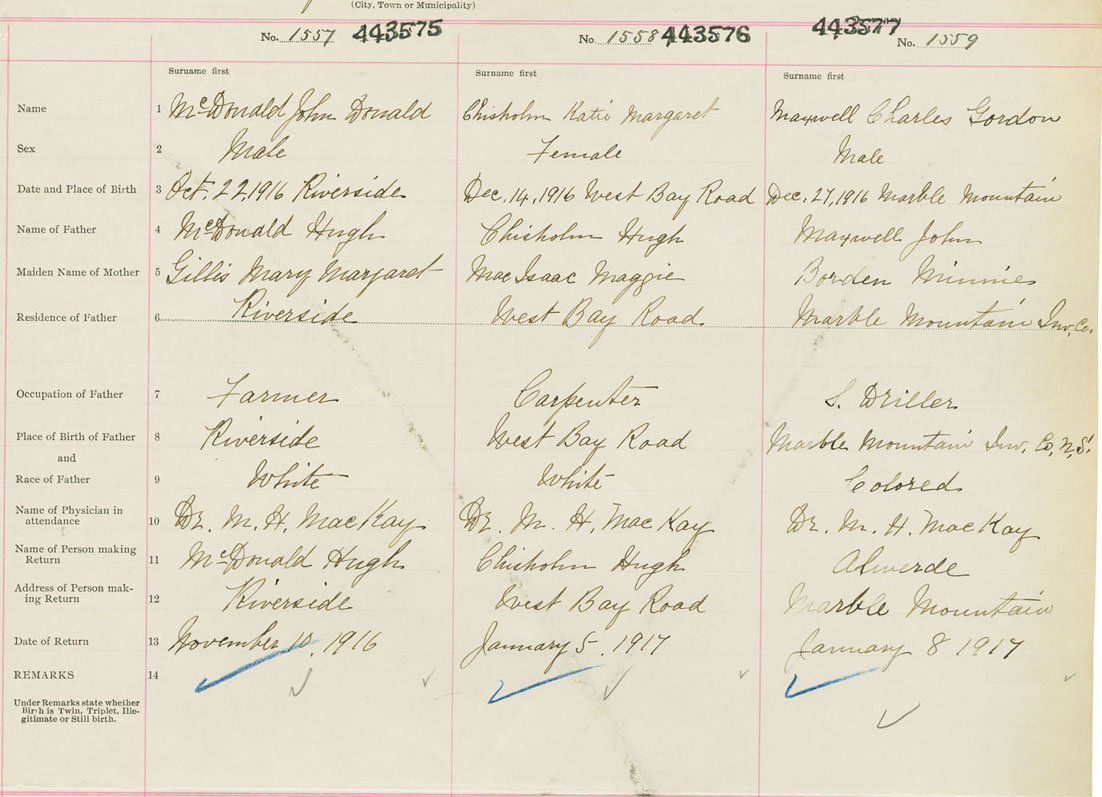 (City, Town or Municipality)
No. 1557 443575 No. 1558 443576 443577 No. 1559
Surname first Surname first Surname first
Name 1 McDonald John Donald Chisholm Katie Margaret Maxwell Charles Gordon
Sex 2 Male Female Male
Date and Place of Birth 3 Oct. 22, 1916 Riverside Dec. 14, 1916 West Bay Road Dec. 27, 1916 Marble Mountain
Name of Father 4 McDonald Hugh Chisholm Hugh Maxwell John
Maiden Name of Mother 5 Gillis Mary Margaret MacIsaac Maggie Borden Minnie
Residence of Father 6 Riverside West Bay Road Marble Mountain Inv. Co.
Occupation of Father 7 Farmer Carpenter S. Driller
Place of Birth of Father 8 Riverside West Bay Road Marble Mountain Inv. Co, N.S.
and
Race of Father 9 White White Colored
Name of Physician in
attendance 10 Dr. M. H. MacKay Dr. M. H. MacKay Dr. M. H. MacKay
Name of Person making
Return 11 McDonald Hugh Chisholm Hugh
Address of Person mak-
ing Return 12 Riverside West Bay Road Marble Mountain
Date of Return 13 November 10, 1916 January 5, 1917 January 8 1917
REMARKS 14
Under Remarks state whether
Birth is Twin, Triplet, Ille-
gitimate or Still birth.